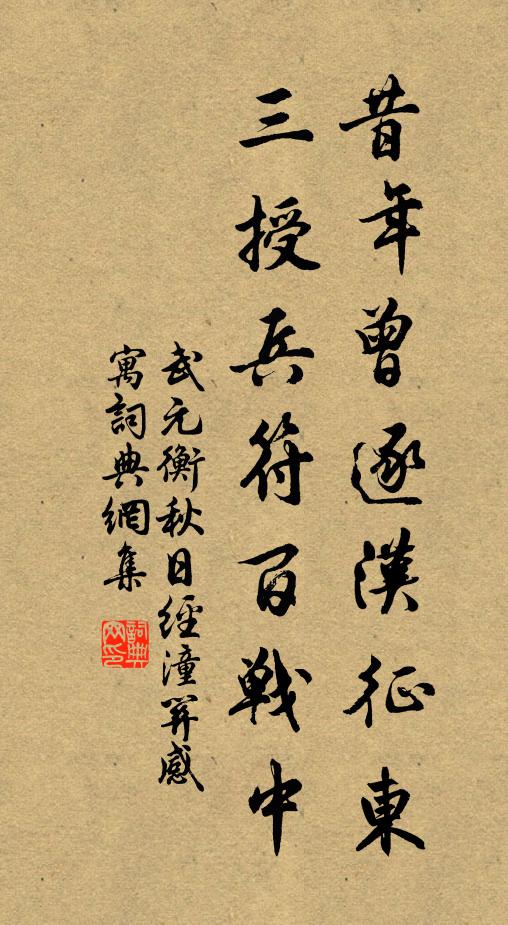 昔年曾逐漢征東
三授兵符百戰中
武元衡秋日經潼関感
寓詞典網集
詞典
网印